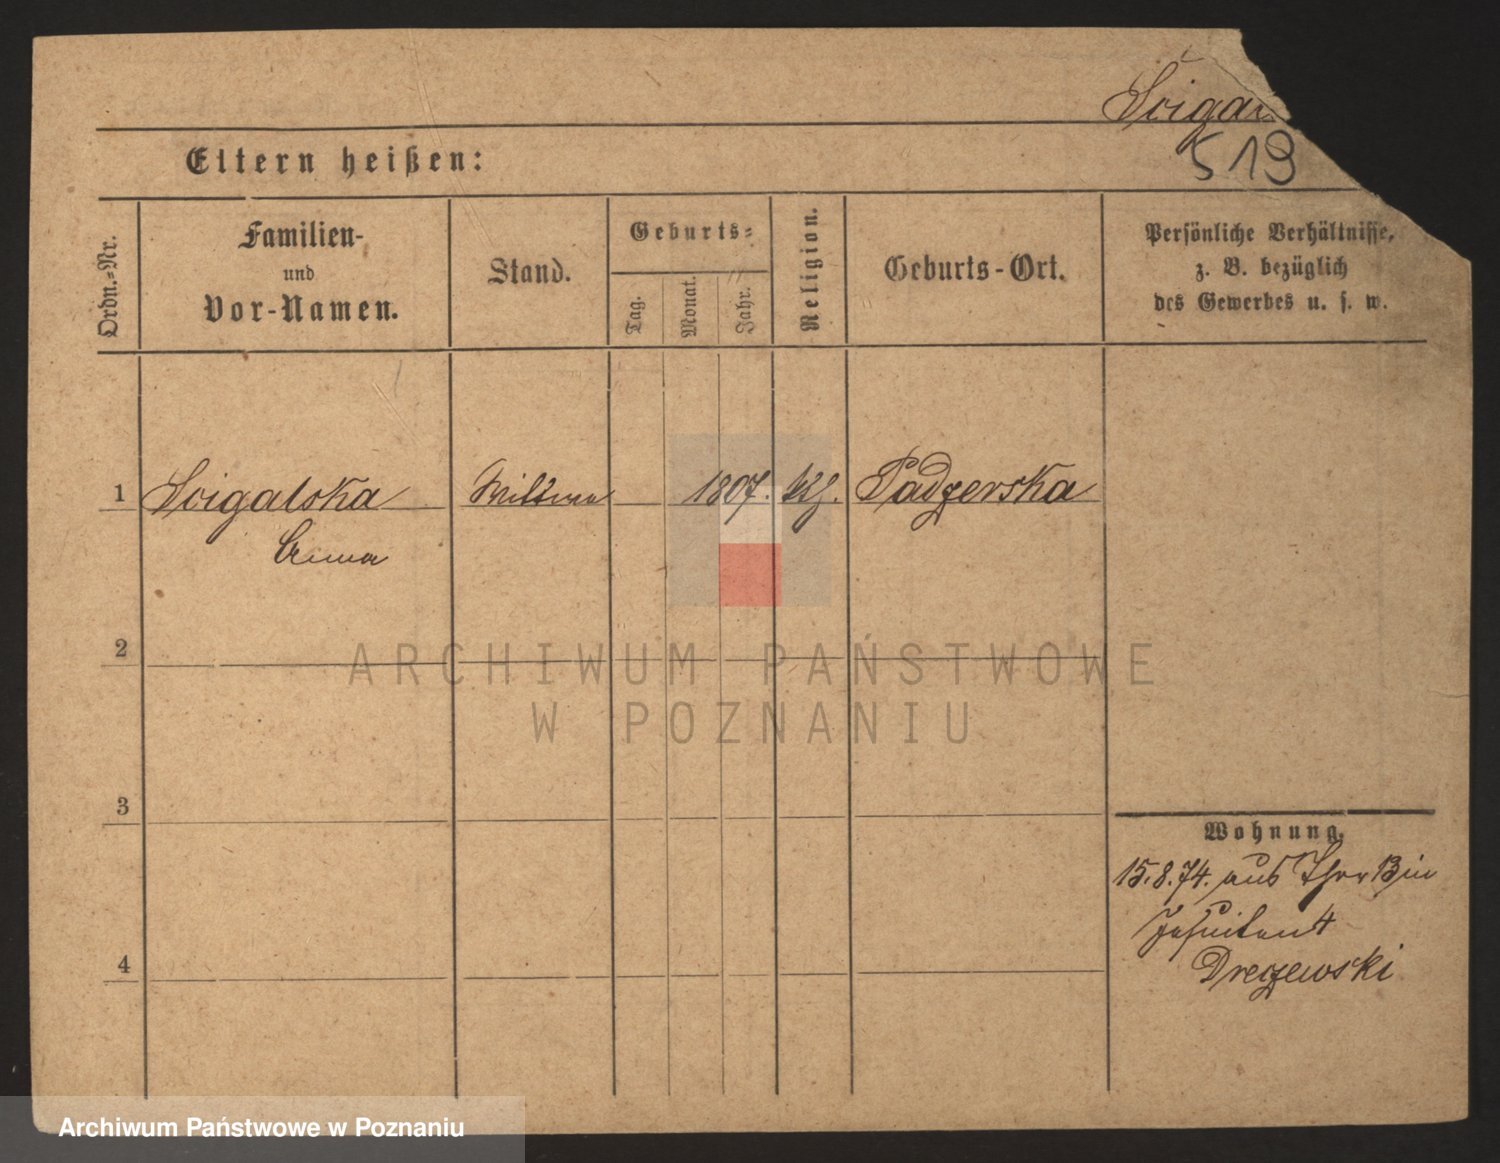 Ścigal
519
Eltern heißen:
Ordn.-Nr.
Familien-
und
Vor-Namen.
Stand.
Geburts-
Tag.
Monat.
Jahr.
Religion.
Geburts-Ort.
Persönliche Verhältnisse,
z. B. bezüglich
des Gewerbes u. s. w.
1 Ścigalska Wittwe 1807. kth. Padzerska
Anna
2
ARCHIWUM PAŃSTWOWE
W POZNANIU
3
Wohnung.
15.8.74. aus
Jesuitenst 4
Dreszewski
4
Archiwum Państwowe w Poznaniu